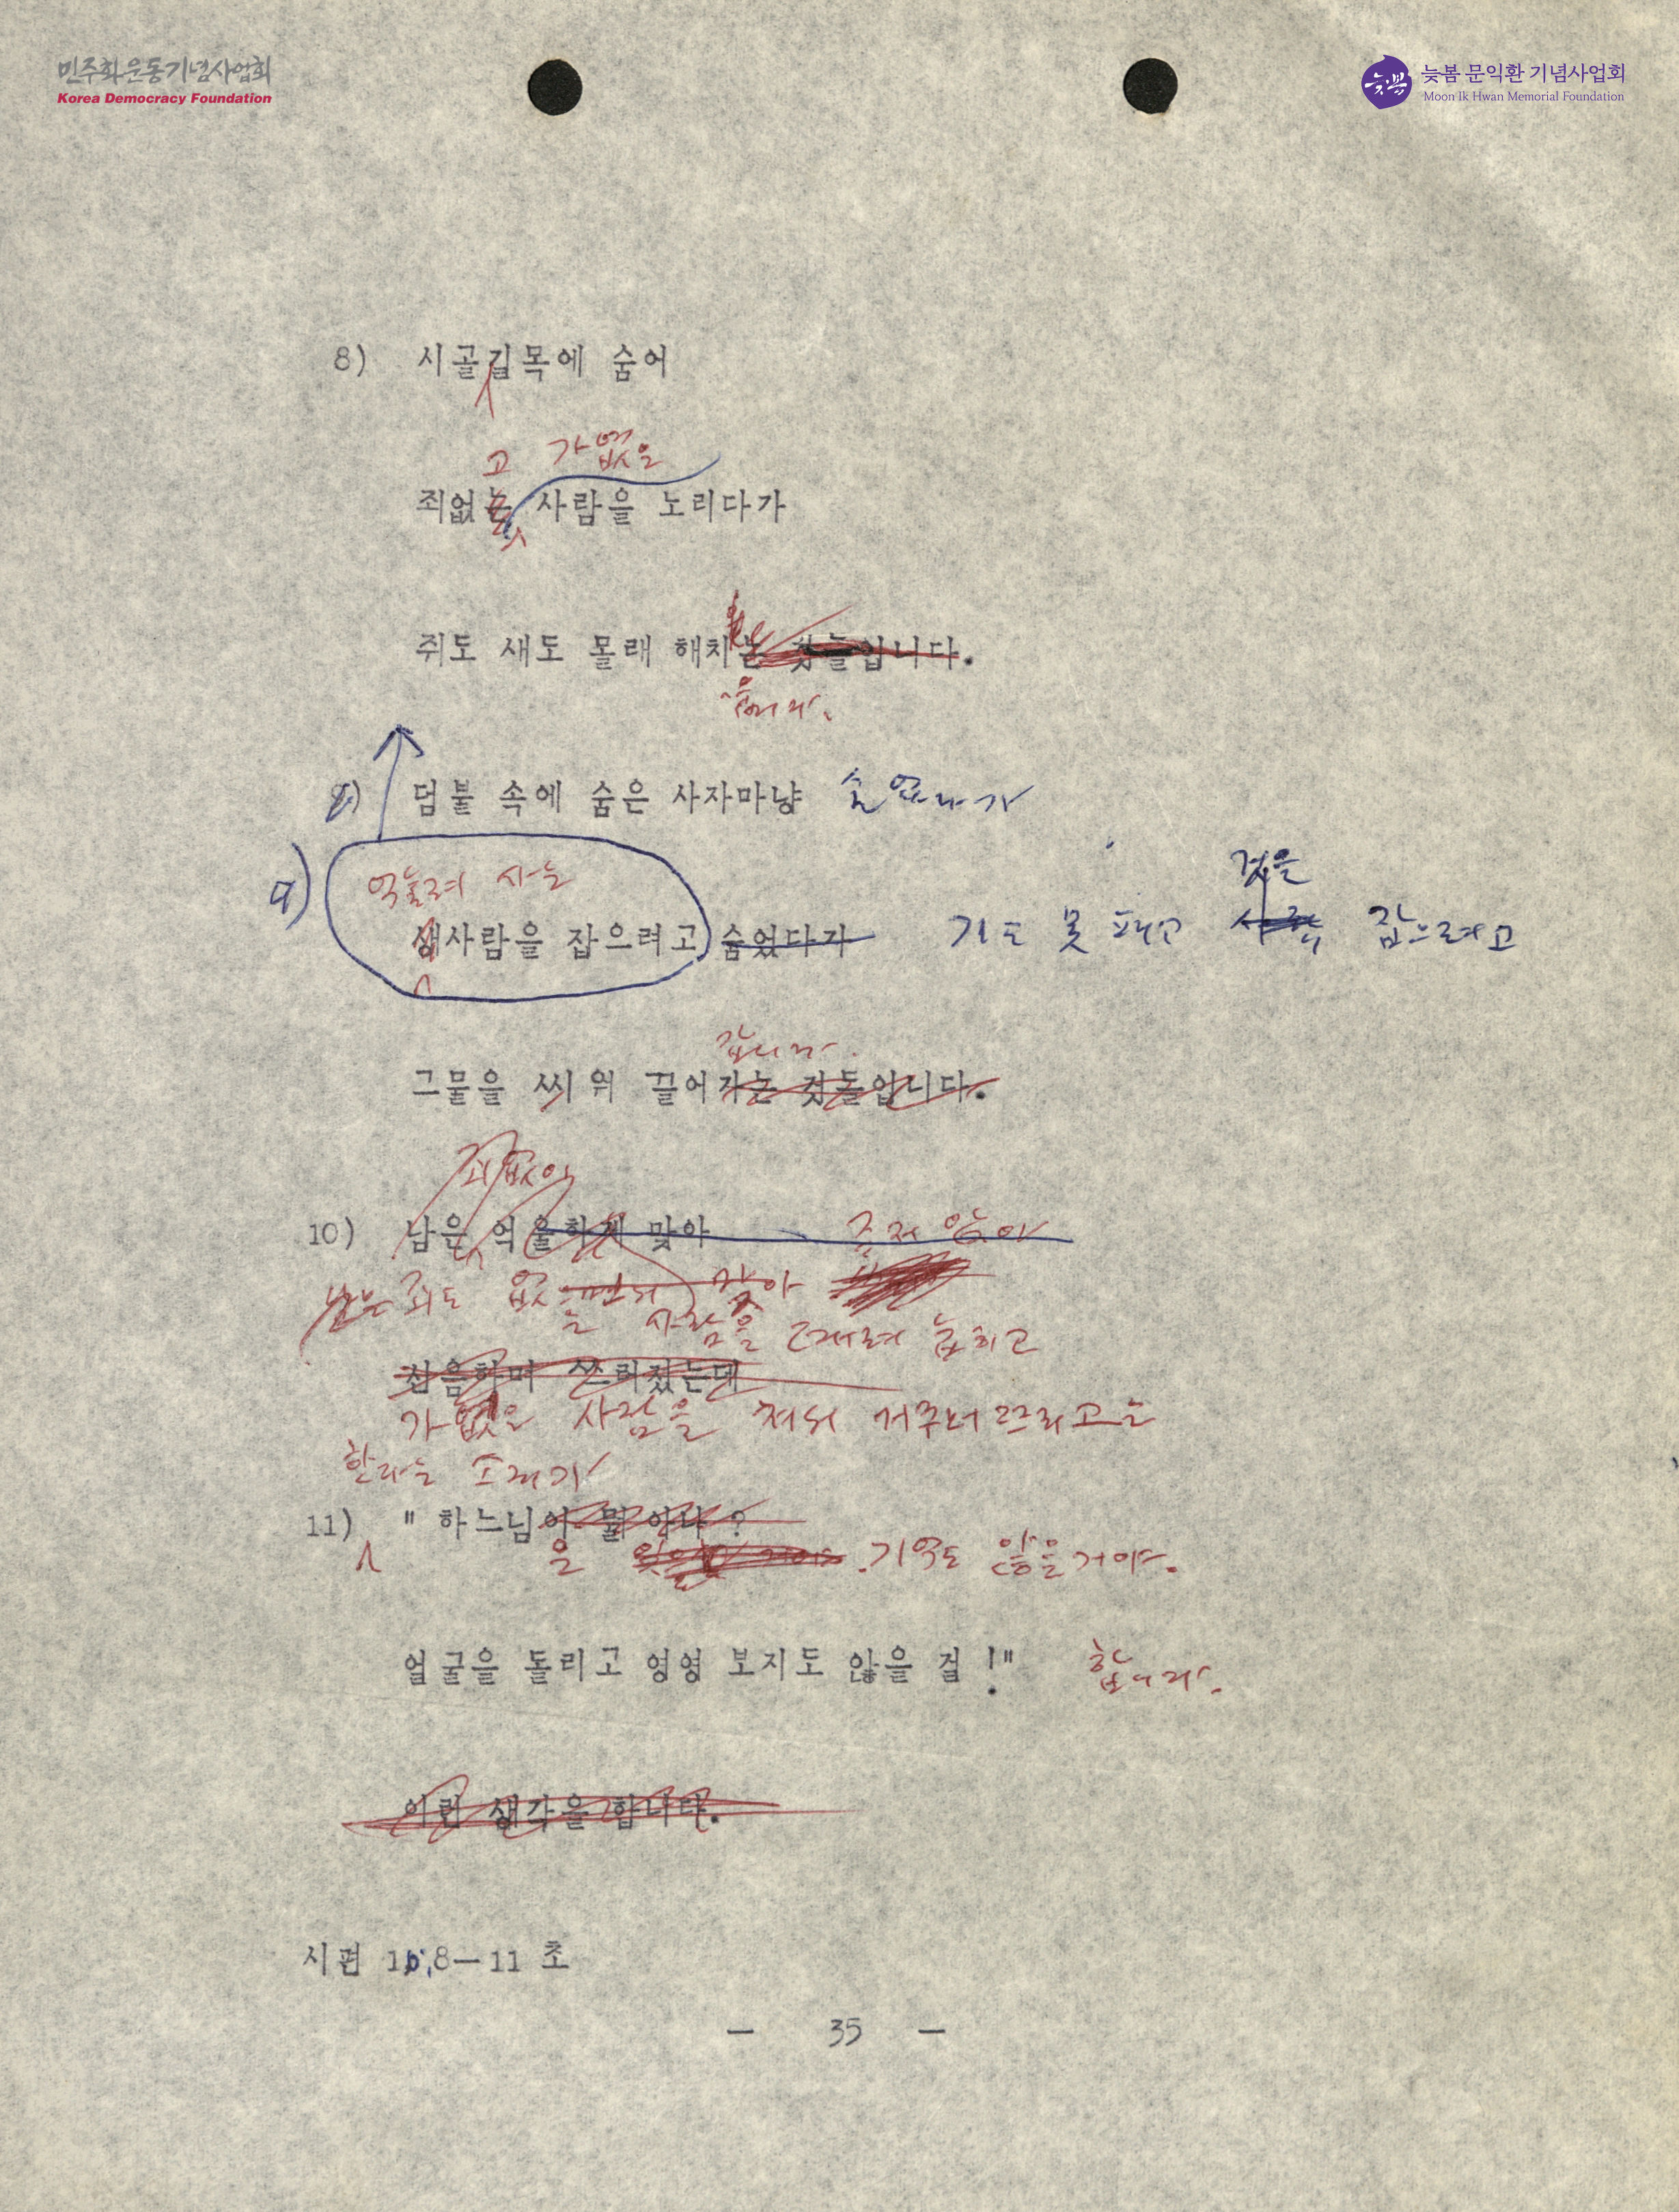 민주화운동기념사업회
Korea Democracy Foundation
늦봄
늦봄 문익환 기념사업회
Moon Ik Hwan Memorial Foundation
8) 시골길목에 숨어
고 가없은
죄없는 사람을 노리다가
쥐도 새도 몰래 해치는 것들입니다.
읍니다.
덤불 속에 숨은 사자마냥 숨었다가
9) 억눌려 사는
생사람을 잡으려고 숨었다가 기도 못 펴고 것을 잡으려고
갑니다.
그물을 씌워 끌어가는 것들입니다.
죄없이
10) 남은 억울하게 맞아
남은 죄도 없으면서 맞아
는 사람을 때려 눕히고
신음하며 쓰러졌는데
가없은 사람을 쳐서 거꾸러뜨리고는
한다는 소리가
11) " 하느님이 뭘 아나 ?
을 기억도 않을거야.
얼굴을 돌리고 영영 보지도 않을 걸 !" 합니다.
이런 생각을 합니다.
시편 10,8—11 초
— 35 —